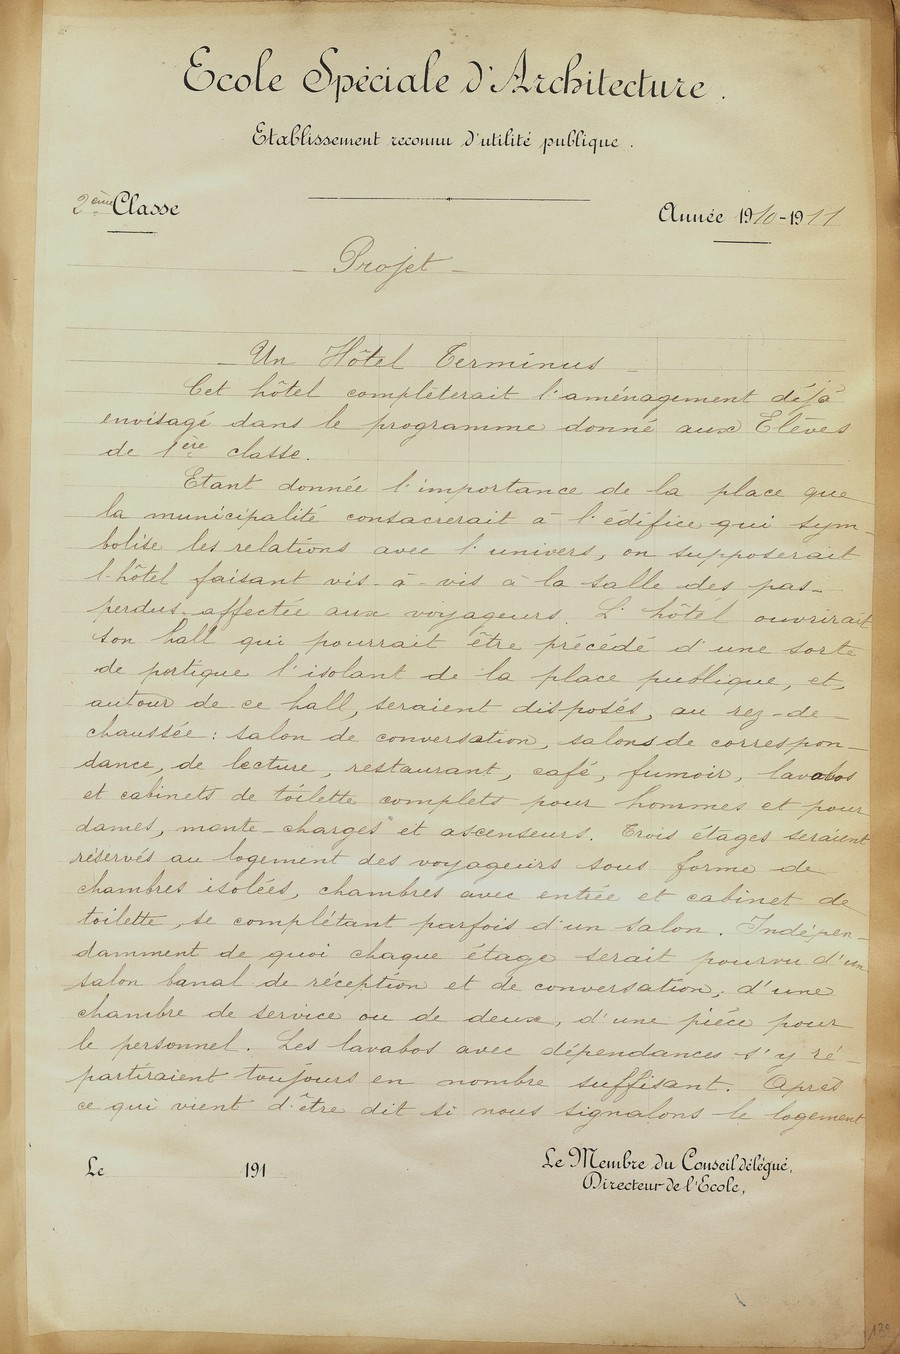 Ecole Spéciale d'Architecture.
Etablissement reconnu d'utilité publique.
2ème Classe
Année 1910-1911
- Projet -
- Un Hôtel Terminus -
Cet hôtel complèterait l'aménagement déjà
envisagé dans le programme donné aux Elèves
de 1ère classe.
Etant donnée l'importance de la place que
la municipalité consacrerait à l'édifice qui sym-
bolise les relations avec l'univers, on supposerait
l'hôtel faisant vis-à-vis à la salle des pas-
perdus affectée aux voyageurs. L'hôtel ouvrirait
son hall qui pourrait être précédé d'une sorte
de portique l'isolant de la place publique, et,
autour de ce hall, seraient disposés, au rez-de-
chaussée : salon de conversation, salons de correspon-
dance, de lecture, restaurant, café, fumoir, lavabos
et cabinets de toilette complets pour hommes et pour
dames, monte-charges et ascenseurs. Trois étages seraient
réservés au logement des voyageurs sous forme de
chambres isolées, chambres avec entrée et cabinet de
toilette, se complétant parfois d'un salon. Indépen-
damment de quoi chaque étage serait pourvu d'un
salon banal de réception et de conversation, d'une
chambre de service ou de deux, d'une pièce pour
le personnel. Les lavabos avec dépendances s'y ré-
partiraient toujours en nombre suffisant. Après
ce qui vient d'être dit si nous signalons le logement
Le 191
Le Membre du Conseil délégué,
Directeur de l'Ecole,